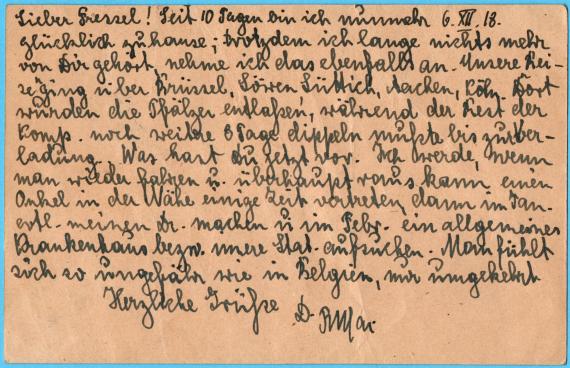 Lieber Fressel! Seit 10 Tagen bin ich nunmehr 6. XII. 18.
glücklich zuhause; trotzdem ich lange nichts mehr
von Dir gehört, nehme ich das ebenfalls an. Unsere Rei-
se ging über Brüssel, Löwen Lüttich, Aachen, Köln. Dort
wurden die Pfälzer entlassen, während der Rest der
Komp. noch weitere 8 Tage dippeln mußte bis zur Ver-
ladung. Was hast Du jetzt vor. Ich werde, wenn
man wieder fahren u. überhaupt raus kann einen
Onkel in der Nähe einige Zeit vertreten, dann im Jan.
evtl. meinen Dr. machen u im Febr. ein allgemeines
Krankenhaus bezw. innere Stat. aufsuchen. Man fühlt
sich so ungefähr wie in Belgien, nur umgekehrt
Herzliche Grüße D.